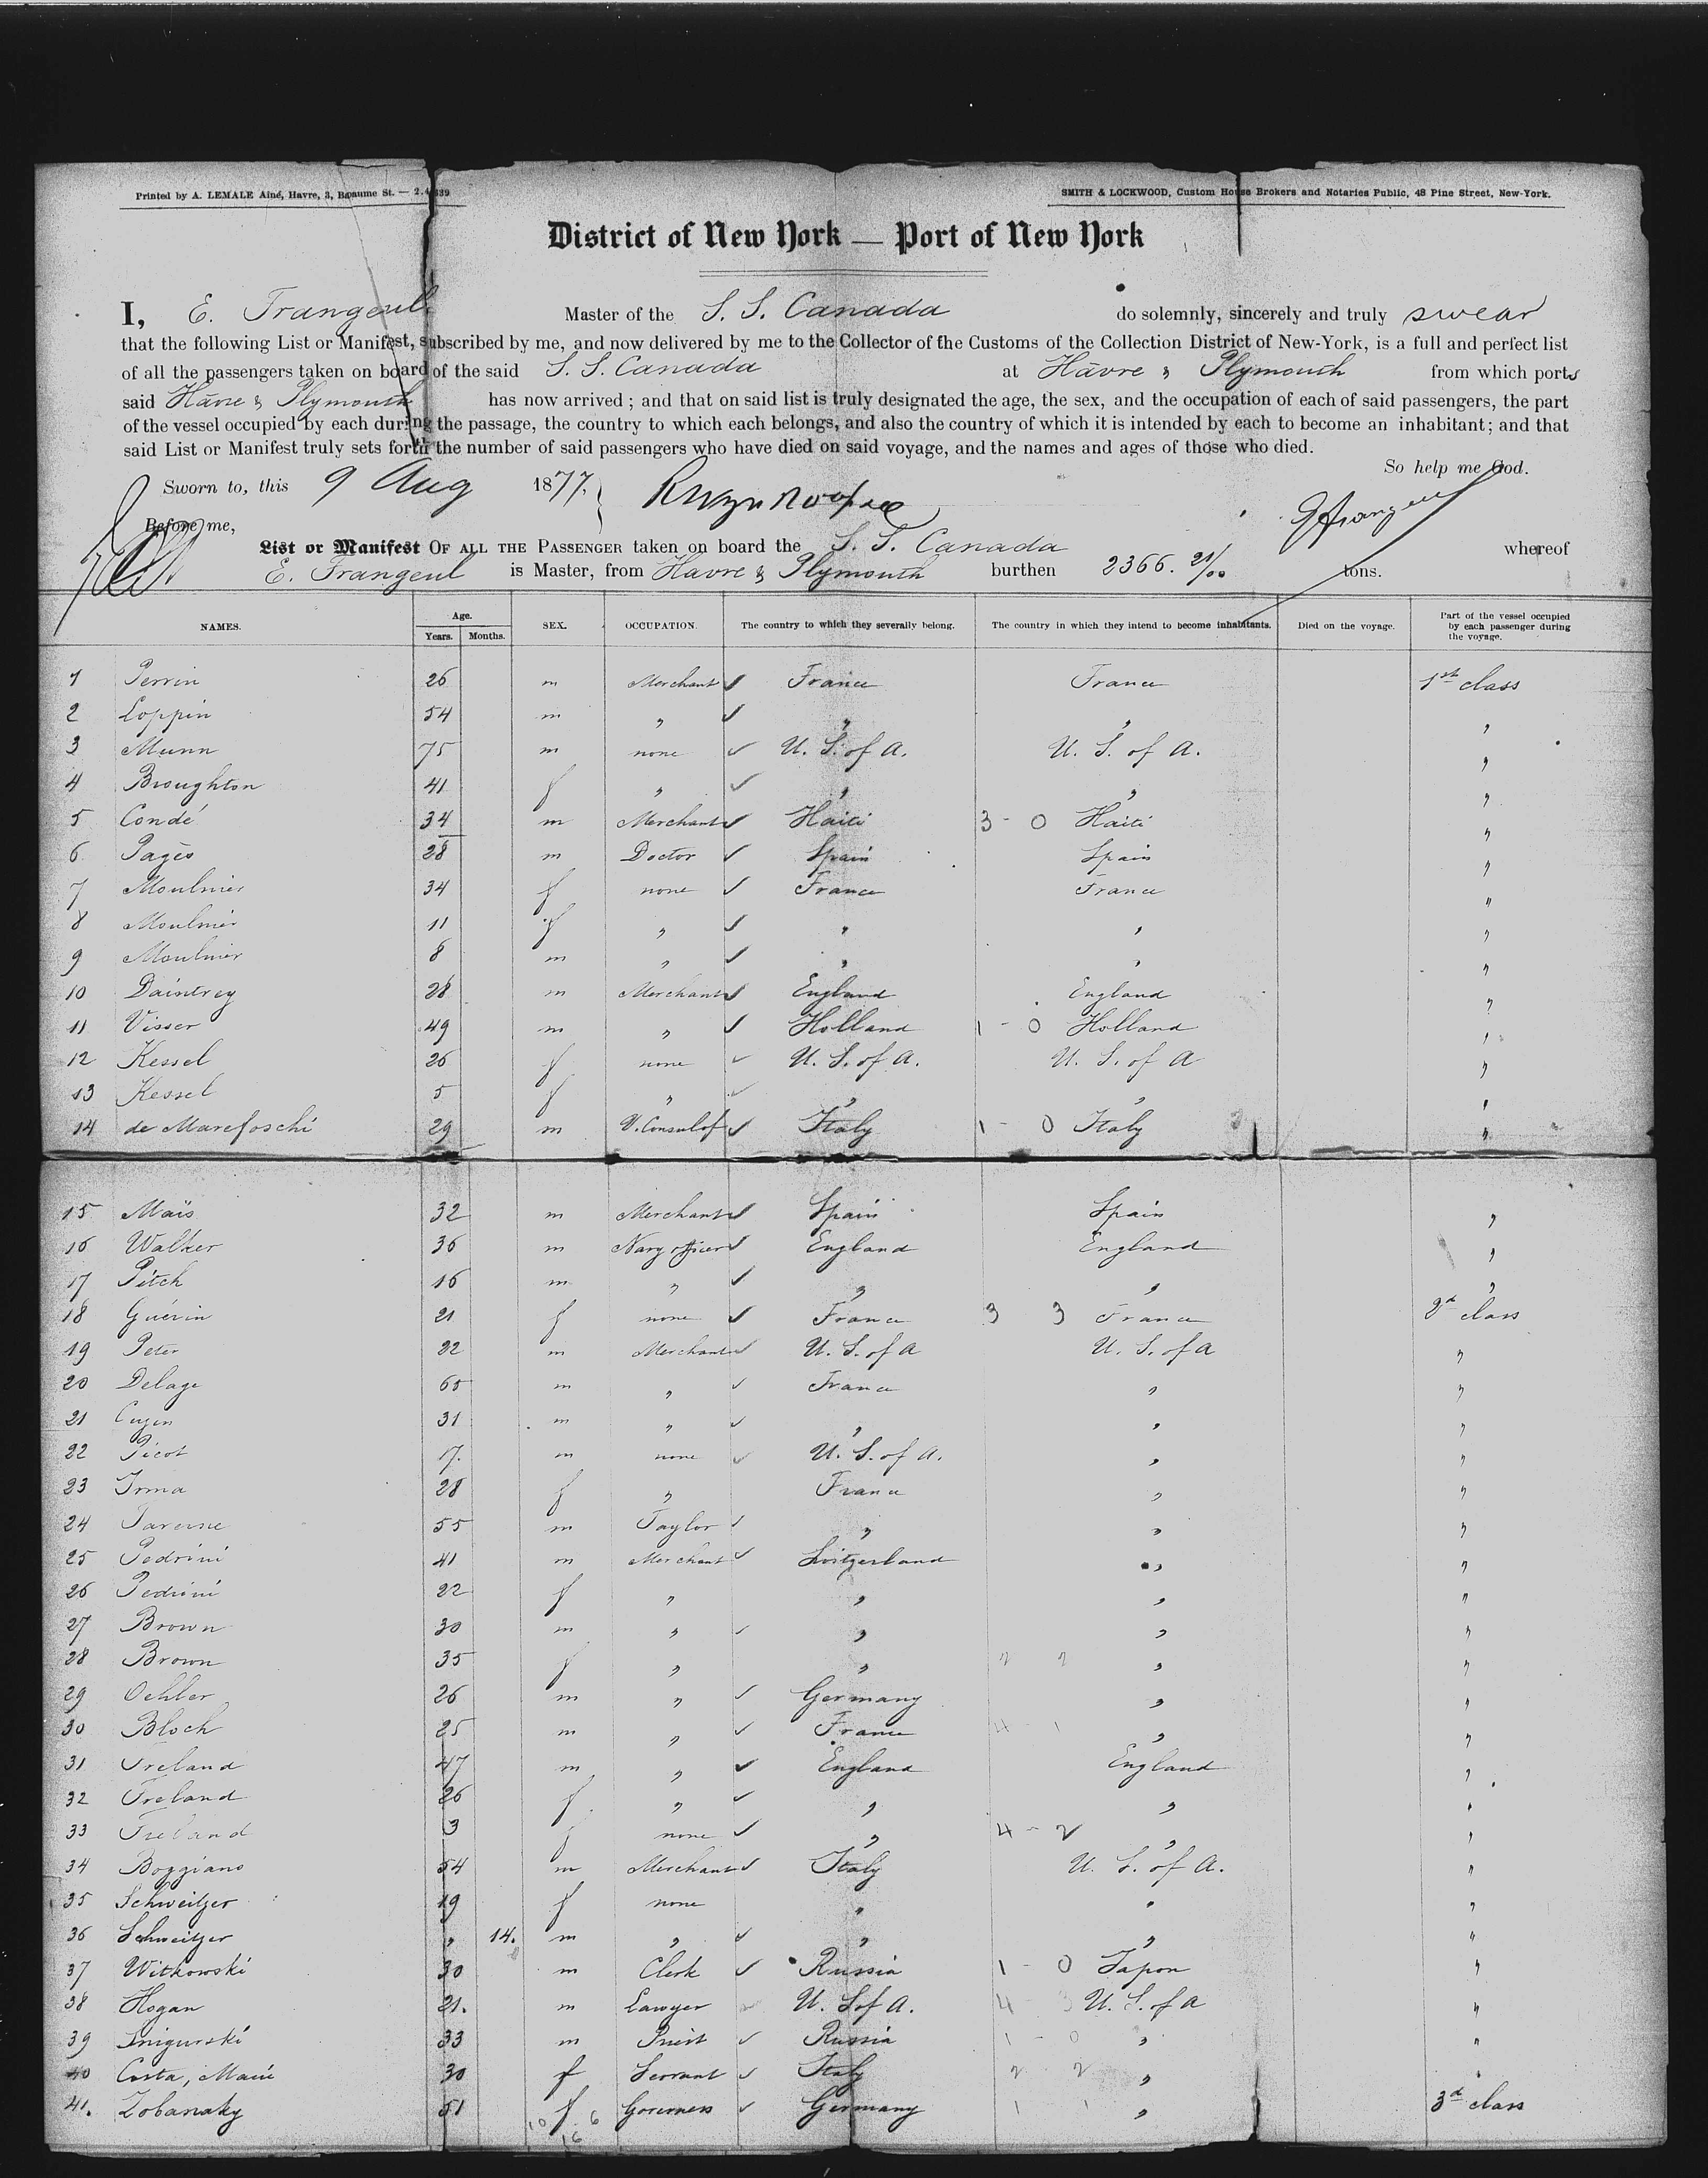 Printed by A. LEMALE Aîné, Havre, 3, Beaume St. — 2.4.139
SMITH & LOCKWOOD, Custom House Brokers and Notaries Public, 48 Pine Street, New-York.
District of New York — Port of New York
I, E. Frangeul Master of the S. S. Canada do solemnly, sincerely and truly swear
that the following List or Manifest, subscribed by me, and now delivered by me to the Collector of the Customs of the Collection District of New-York, is a full and perfect list
of all the passengers taken on board of the said S. S. Canada at Hâvre & Plymouth from which ports
said Hâvre & Plymouth has now arrived; and that on said list is truly designated the age, the sex, and the occupation of each of said passengers, the part
of the vessel occupied by each during the passage, the country to which each belongs, and also the country of which it is intended by each to become an inhabitant; and that
said List or Manifest truly sets forth the number of said passengers who have died on said voyage, and the names and ages of those who died.
So help me God.
Sworn to, this 9 Aug 1877.
E Frangeul
Before me,
List or Manifest OF ALL THE PASSENGER taken on board the S. S. Canada whereof
E. Frangeul is Master, from Havre & Plymouth burthen 2366. 21/00 tons.
NAMES. Age. Years. Months. SEX. OCCUPATION. The country to which they severally belong. The country in which they intend to become inhabitants. Died on the voyage. Part of the vessel occupied by each passenger during the voyage.
1 Perrin 26 m Merchant ✓ France France 1st class
2 Loppin 54 m " ✓ " " "
3 Munn 75 m none ✓ U. S. of A. U. S. of A. "
4 Broughton 41 f " ✓ " " "
5 Condé 34 m Merchant ✓ Haïti 3 - 0 Haïti "
6 Pagès 28 m Doctor ✓ Spain Spain "
7 Moulnier 34 f none ✓ France France "
8 Moulnier 11 f " ✓ " " "
9 Moulnier 8 m " ✓ " " "
10 Daintrey 28 m Merchant ✓ England England "
11 Visser 49 m " ✓ Holland 1 - 0 Holland "
12 Kessel 26 f none ✓ U. S. of A. U. S. of A "
13 Kessel 5 f " ✓ " " "
14 de Marefoschi 29 m V. Consul of ✓ Italy 1 - 0 Italy "
15 Maïs 32 m Merchant ✓ Spain Spain "
16 Walker 36 m Navy officer ✓ England England "
17 Pitch 16 m " ✓ " " "
18 Guérin 21 f none ✓ France 3 3 France 2d class
19 Peter 22 m Merchant ✓ U. S. of A U. S. of A "
20 Delage 65 m " ✓ France " "
21 31 m " ✓ " " "
22 Picot 17. m none ✓ U. S. of A. " "
23 Irma 28 f " France " "
24 55 m Taylor ✓ " " "
25 Pedrini 41 m Merchant ✓ Switzerland " "
26 Pedrini 22 f " " " "
27 Brown 30 m " ✓ " " "
28 Brown 35 f " " 2 2 " "
29 Oehler 26 m " ✓ Germany " "
30 Bloch 25 m " ✓ France 4 - 1 " "
31 Ireland 47 m " ✓ England England "
32 Ireland 26 f " ✓ " " "
33 Ireland 3 f none ✓ " 4 - 2 " "
34 Boggiano 54 m Merchant ✓ Italy U. S. of A. "
35 Schweitzer 19 f none " " "
36 Schweitzer " 14. m " ✓ " " "
37 Witkowski 30 m Clerk ✓ Russia 1 - 0 Japon "
38 Hogan 21. m Lawyer U. S of A. 4 - 3 U. S. of A "
39 Snigurski 33 m Priest ✓ Russia 1 - 0 " "
40 Costa, Marie 30 f Servant ✓ Italy 2 2 " "
41. Zobanaky 51 f Governess ✓ Germany 1 1 " 3d class
10 6
16